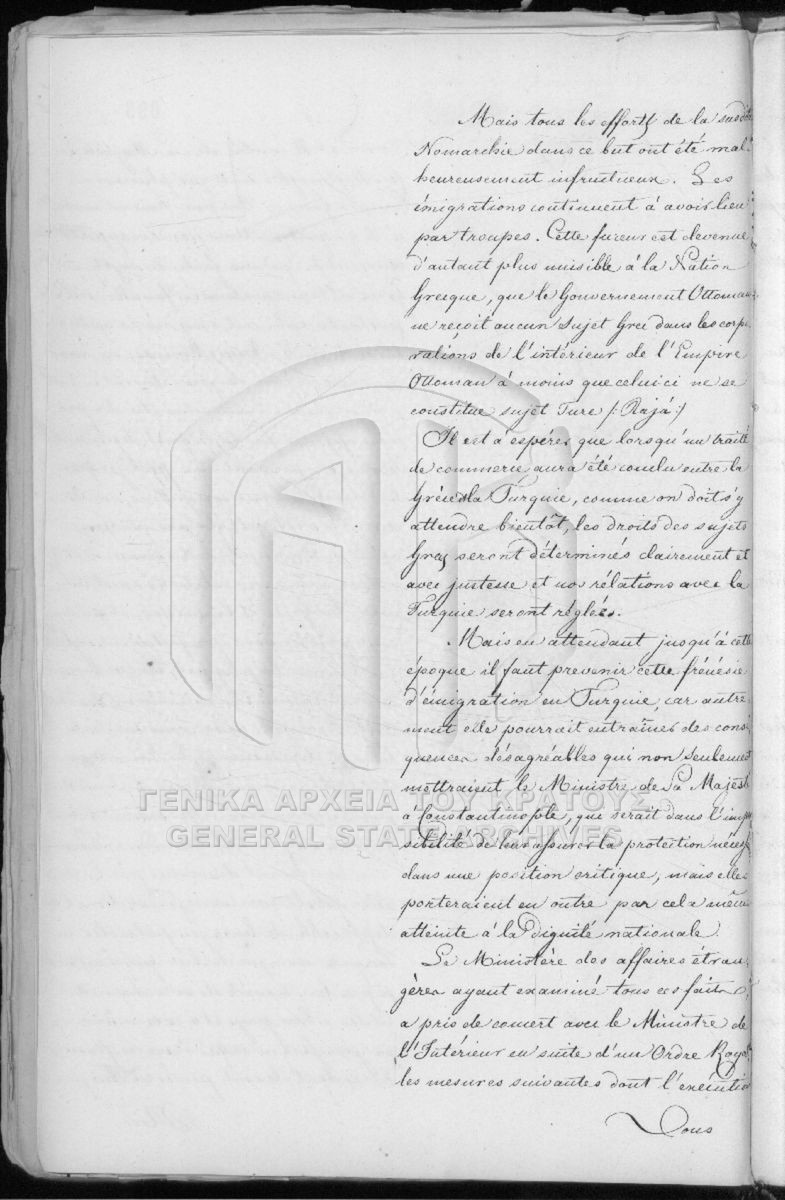 Mais tous les efforts de la susdite
Nomarchie dans ce but ont été mal-
heureusement infructueux. Les
émigrations continuent à avoir lieu
par troupes. Cette fureur est devenue
d'autant plus nuisible à la Nation
Grecque, que le Gouvernement Ottoman
ne reçoit aucun Sujet Grec dans les corpo
rations de l'intérieur de l'Empire
Ottoman à moins que celui-ci ne se
constitue sujet Turc /: Rajá :/
Il est à espérer que lorsqu'un traité
de commerce aura été conclu entre la
Grèce et la Turquie, comme on doit s'y
attendre bientôt, les droits des sujets
Grecs seront déterminés clairement et
avec justesse et nos rélations avec la
Turquie seront réglées.
Mais en attendant jusqu'à cette
époque il faut prevenir cette frénésie
d'émigration en Turquie, car autre
ment elle pourrait entraîner des consé
quences désagréables qui non seulement
mettraient le Ministre de Sa Majesté
à Constantinople, que serait dans l'impos
sibilité de leur assurer la protection nécess
dans une position critique, mais elles
porteraient en outre par cela même
atteinte à la dignité nationale.
Le Ministère des affaires étran
gères ayant examiné tous ces faits
a pris de concert avec le Ministre de
l'Intérieur en suite d'un Ordre Royal
les mesures suivantes dont l'exécution
Vous
ΓΕΝΙΚΑ ΑΡΧΕΙΑ ΤΟΥ ΚΡΑΤΟΥΣ
GENERAL STATE ARCHIVES